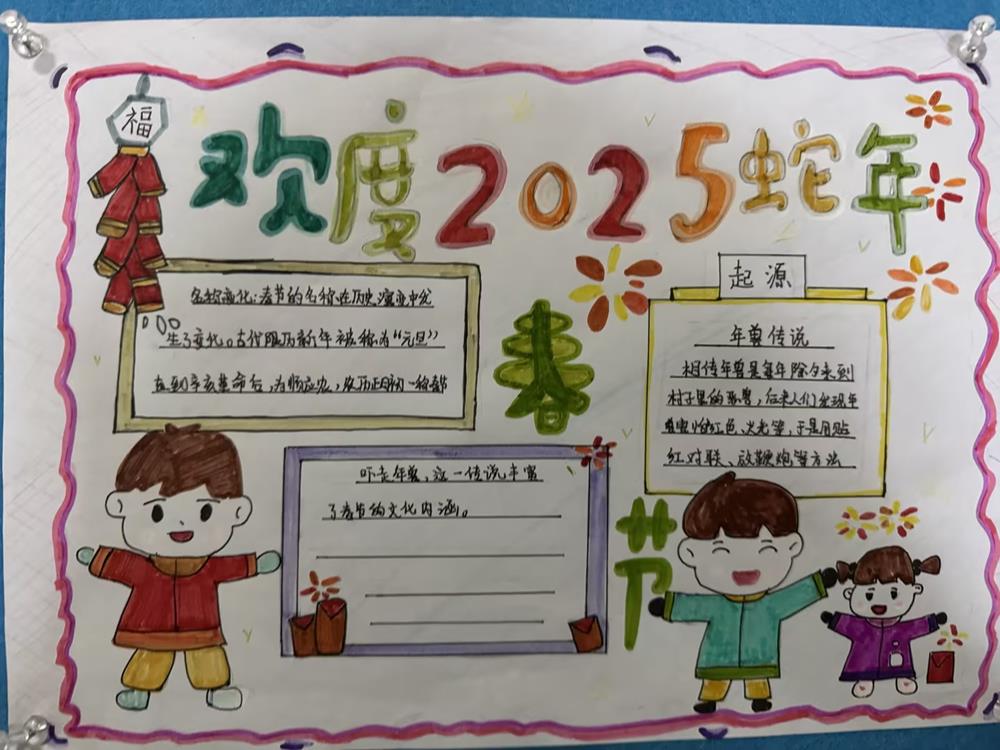 福
欢度2025蛇年
名称变化:春节的名称在历史演变中发
生了变化。古代阳历新年被称为“元旦”
直到辛亥革命后,为顺应农,农历正月初一称春节
春
节
起源
年兽传说
相传年兽是每年除夕来到
村子里的恶兽,后来人们发现年
兽害怕红色、火光等,于是用贴
红对联、放鞭炮等方法
吓走年兽,这一传说丰富
了春节的文化内涵。